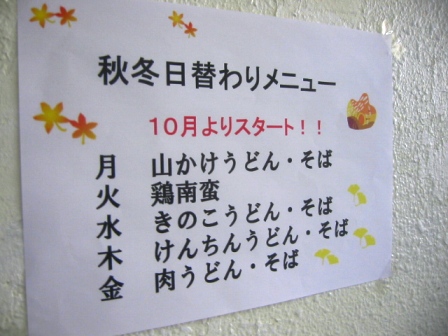 秋冬日替わりメニュー
10月よりスタート!!
月 山かけうどん・そば
火 鶏南蛮
水 きのこうどん・そば
木 けんちんうどん・そば
金 肉うどん・そば